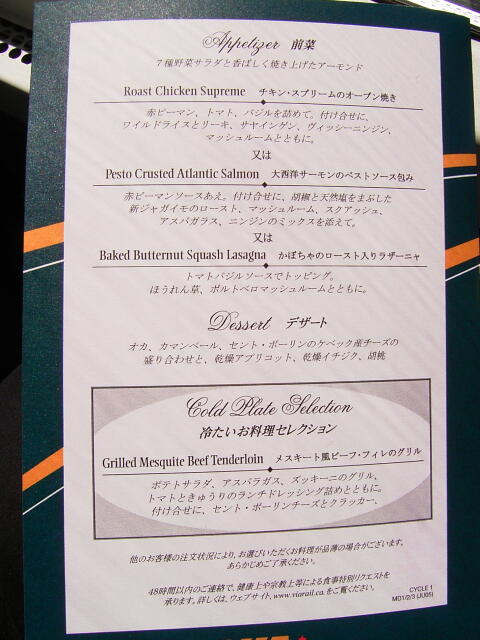 Appetizer 前菜
7種野菜サラダと香ばしく焼き上げたアーモンド
Roast Chicken Supreme チキン・スプリームのオーブン焼き
赤ピーマン、トマト、バジルを詰めて。付け合せに、
ワイルドライスとリーキ、サヤインゲン、ヴィッシーニンジン、
マッシュルームとともに。
又は
Pesto Crusted Atlantic Salmon 大西洋サーモンのペストソース包み
赤ピーマンソースあえ。付け合せに、胡椒と天然塩をまぶした
新ジャガイモのロースト、マッシュルーム、スクアッシュ、
アスパガラス、ニンジンのミックスを添えて。
又は
Baked Butternut Squash Lasagna かぼちゃのロースト入りラザーニャ
トマトバジルソースでトッピング。
ほうれん草、ポルトベロマッシュルームとともに。
Dessert デザート
オカ、カマンベール、セント・ポーリンのケベック産チーズの
盛り合わせと、乾燥アプリコット、乾燥イチジク、胡桃
Cold Plate Selection
冷たいお料理セレクション
Grilled Mesquite Beef Tenderloin メスキート風ビーフ・フィレのグリル
ポテトサラダ、アスパラガス、ズッキーニのグリル、
トマトときゅうりのランチドレッシング詰めとともに。
付け合せに、セント・ポーリンチーズとクラッカー、
他のお客様の注文状況により、お選びいただくお料理が品薄の場合がございます。
あらかじめご了承ください。
48時間以内のご連絡で、健康上や宗教上等による食事特別リクエストを
承ります。詳しくは、ウェブサイト、www.viarail.ca をご覧ください。
CYCLE 1
MD1/2/3 (JU05)